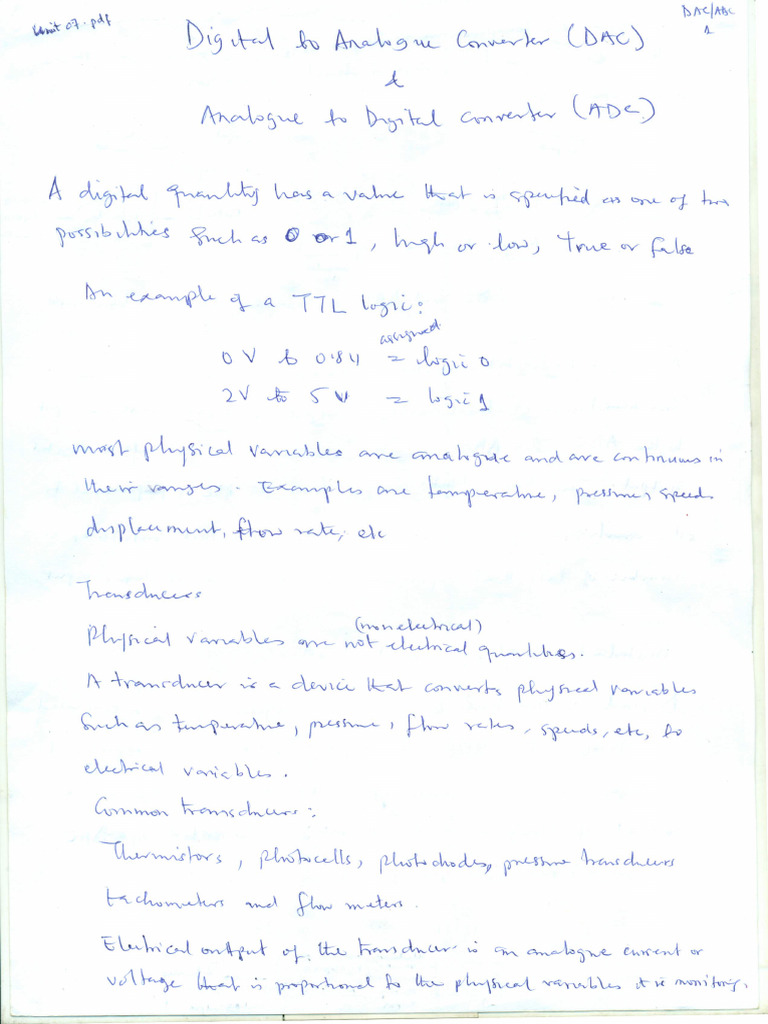 Unit 07.pdf
DAC/ADC
1
Digital to Analogue Converter (DAC)
&
Analogue to Digital Converter (ADC)
A digital quantity has a value that is specified as one of two
possibilities such as 0 or 1, high or low, true or false
An example of a TTL logic:
assigned
0 V to 0.8 V = logic 0
2V to 5 V = logic 1
most physical variables are analogue and are continuous in
their ranges. Examples are temperature, pressure, speeds
displacement, flow rate, etc
Transducers
(nonelectrical)
Physical variables are not electrical quantities.
A transducer is a device that converts physical variables
such as temperature, pressure, flow rates, speeds, etc, to
electrical variables.
Common transducers:
Thermistors, photocells, photodiodes, pressure transducers
tachometers and flow meters.
Electrical output of the transducer is an analogue current or
voltage that is proportional to the physical variables it is monitoring.